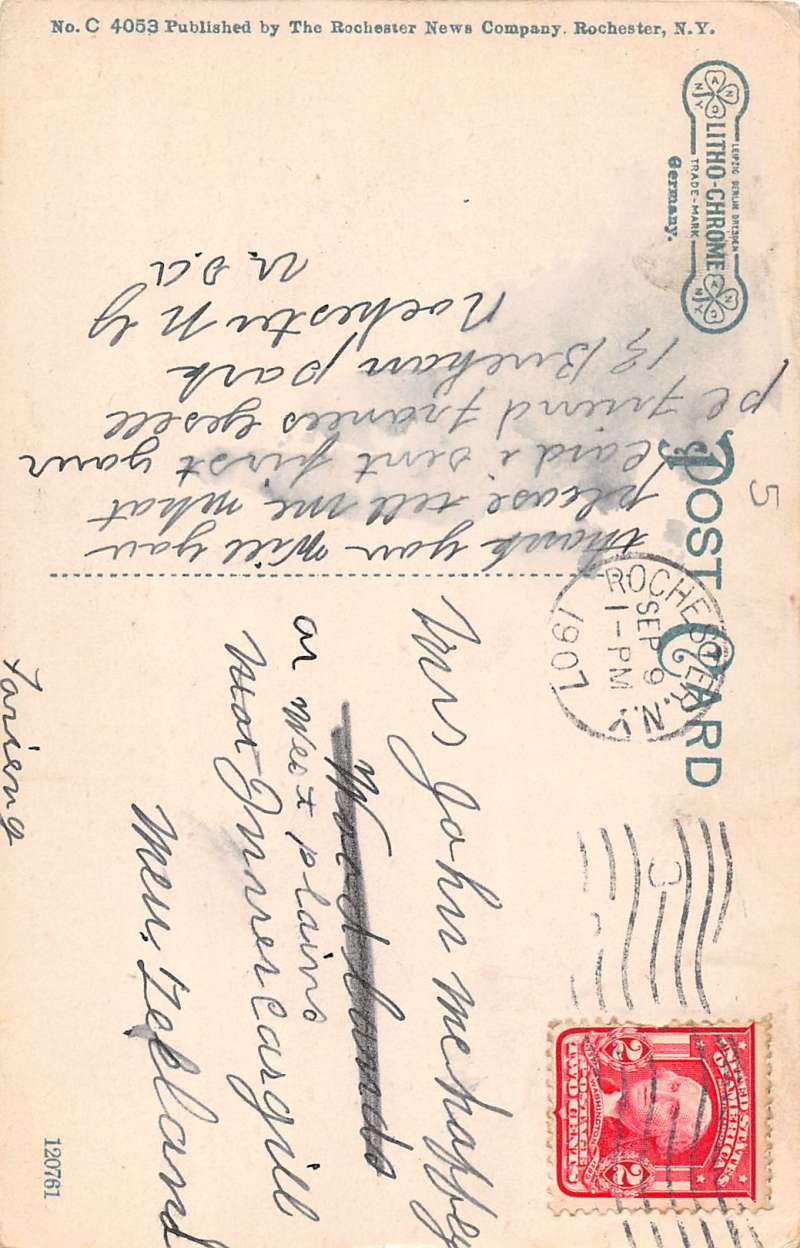 No. C 4053 Published by The Rochester News Company. Rochester, N.Y.
A N C N Y
LITHO-CHROME
LEIPZIG BERLIN DRESDEN
TRADE-MARK
A N C N Y
Germany.
POST CARD
5
ROCHESTER, N.Y.
SEP 9
1-PM
1907
3
UNITED STATES
OF AMERICA
2 2
POSTAGE
TWO CENTS
thank you will you
please tell me what
card i sent first your
pc friend Frances Gesell
Park
Rochester N Y
U.S.A
Mrs John mehaffey
Woodlands
or West plains
near Invercargill
New. Zealand
120761